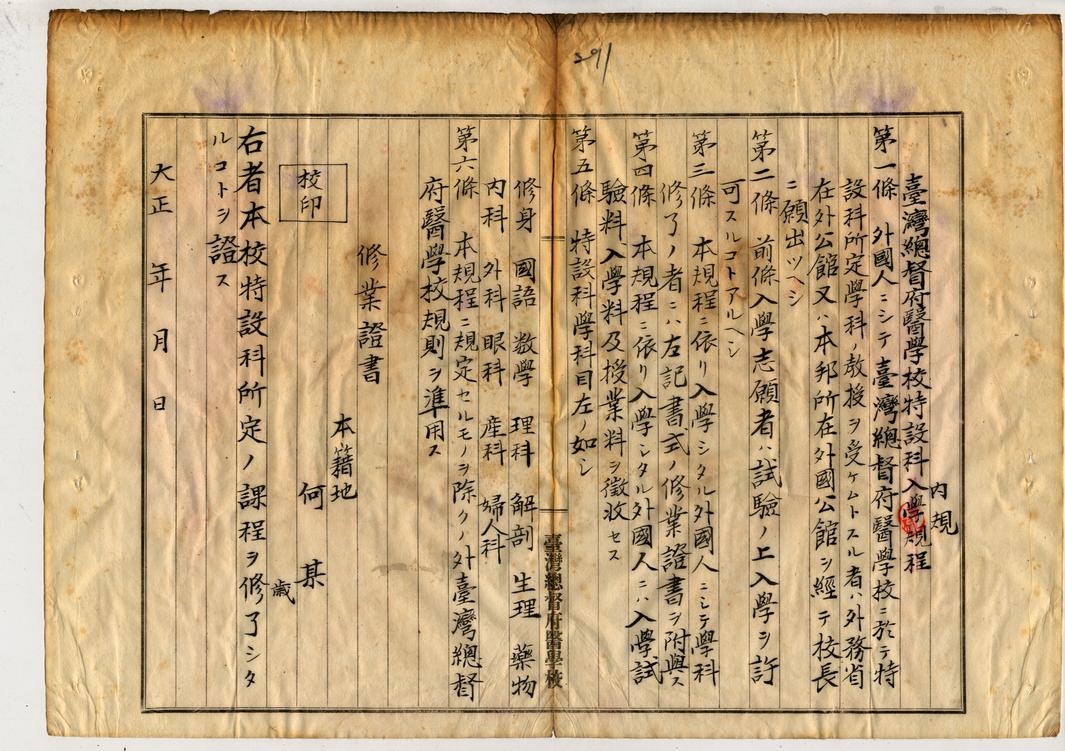 291
內規
臺灣總督府醫學校特設科入學規程
第一條　外國人ニシテ臺灣總督府醫學校ニ於テ特
設科所定學科ノ教授ヲ受ケムトスル者ハ外務省
在外公館又ハ本邦所在外國公館ヲ經テ校長
ニ願出ツヘシ
第二條　前條入學志願者ハ試驗ノ上入學ヲ許
可スルコトアルヘシ
第三條　本規程ニ依リ入學シタル外國人ニシテ學科
修了ノ者ニハ左記書式ノ修業證書ヲ附與ス
第四條　本規程ニ依リ入學シタル外國人ニハ入學試
驗料入學料及授業料ヲ徵收セス
第五條　特設科學科目左ノ如シ
臺灣總督府醫學校
修身　國語　数學　理科　解剖　生理　藥物
內科　外科　眼科　産科　婦人科
第六條　本規程ニ規定セルモノヲ除クノ外臺灣總督
府醫學校規則ヲ準用ス
修業證書
本籍地
何　某
歲
校印
右者本校特設科所定ノ課程ヲ修了シタ
ルコトヲ證ス
大正　年　月　日